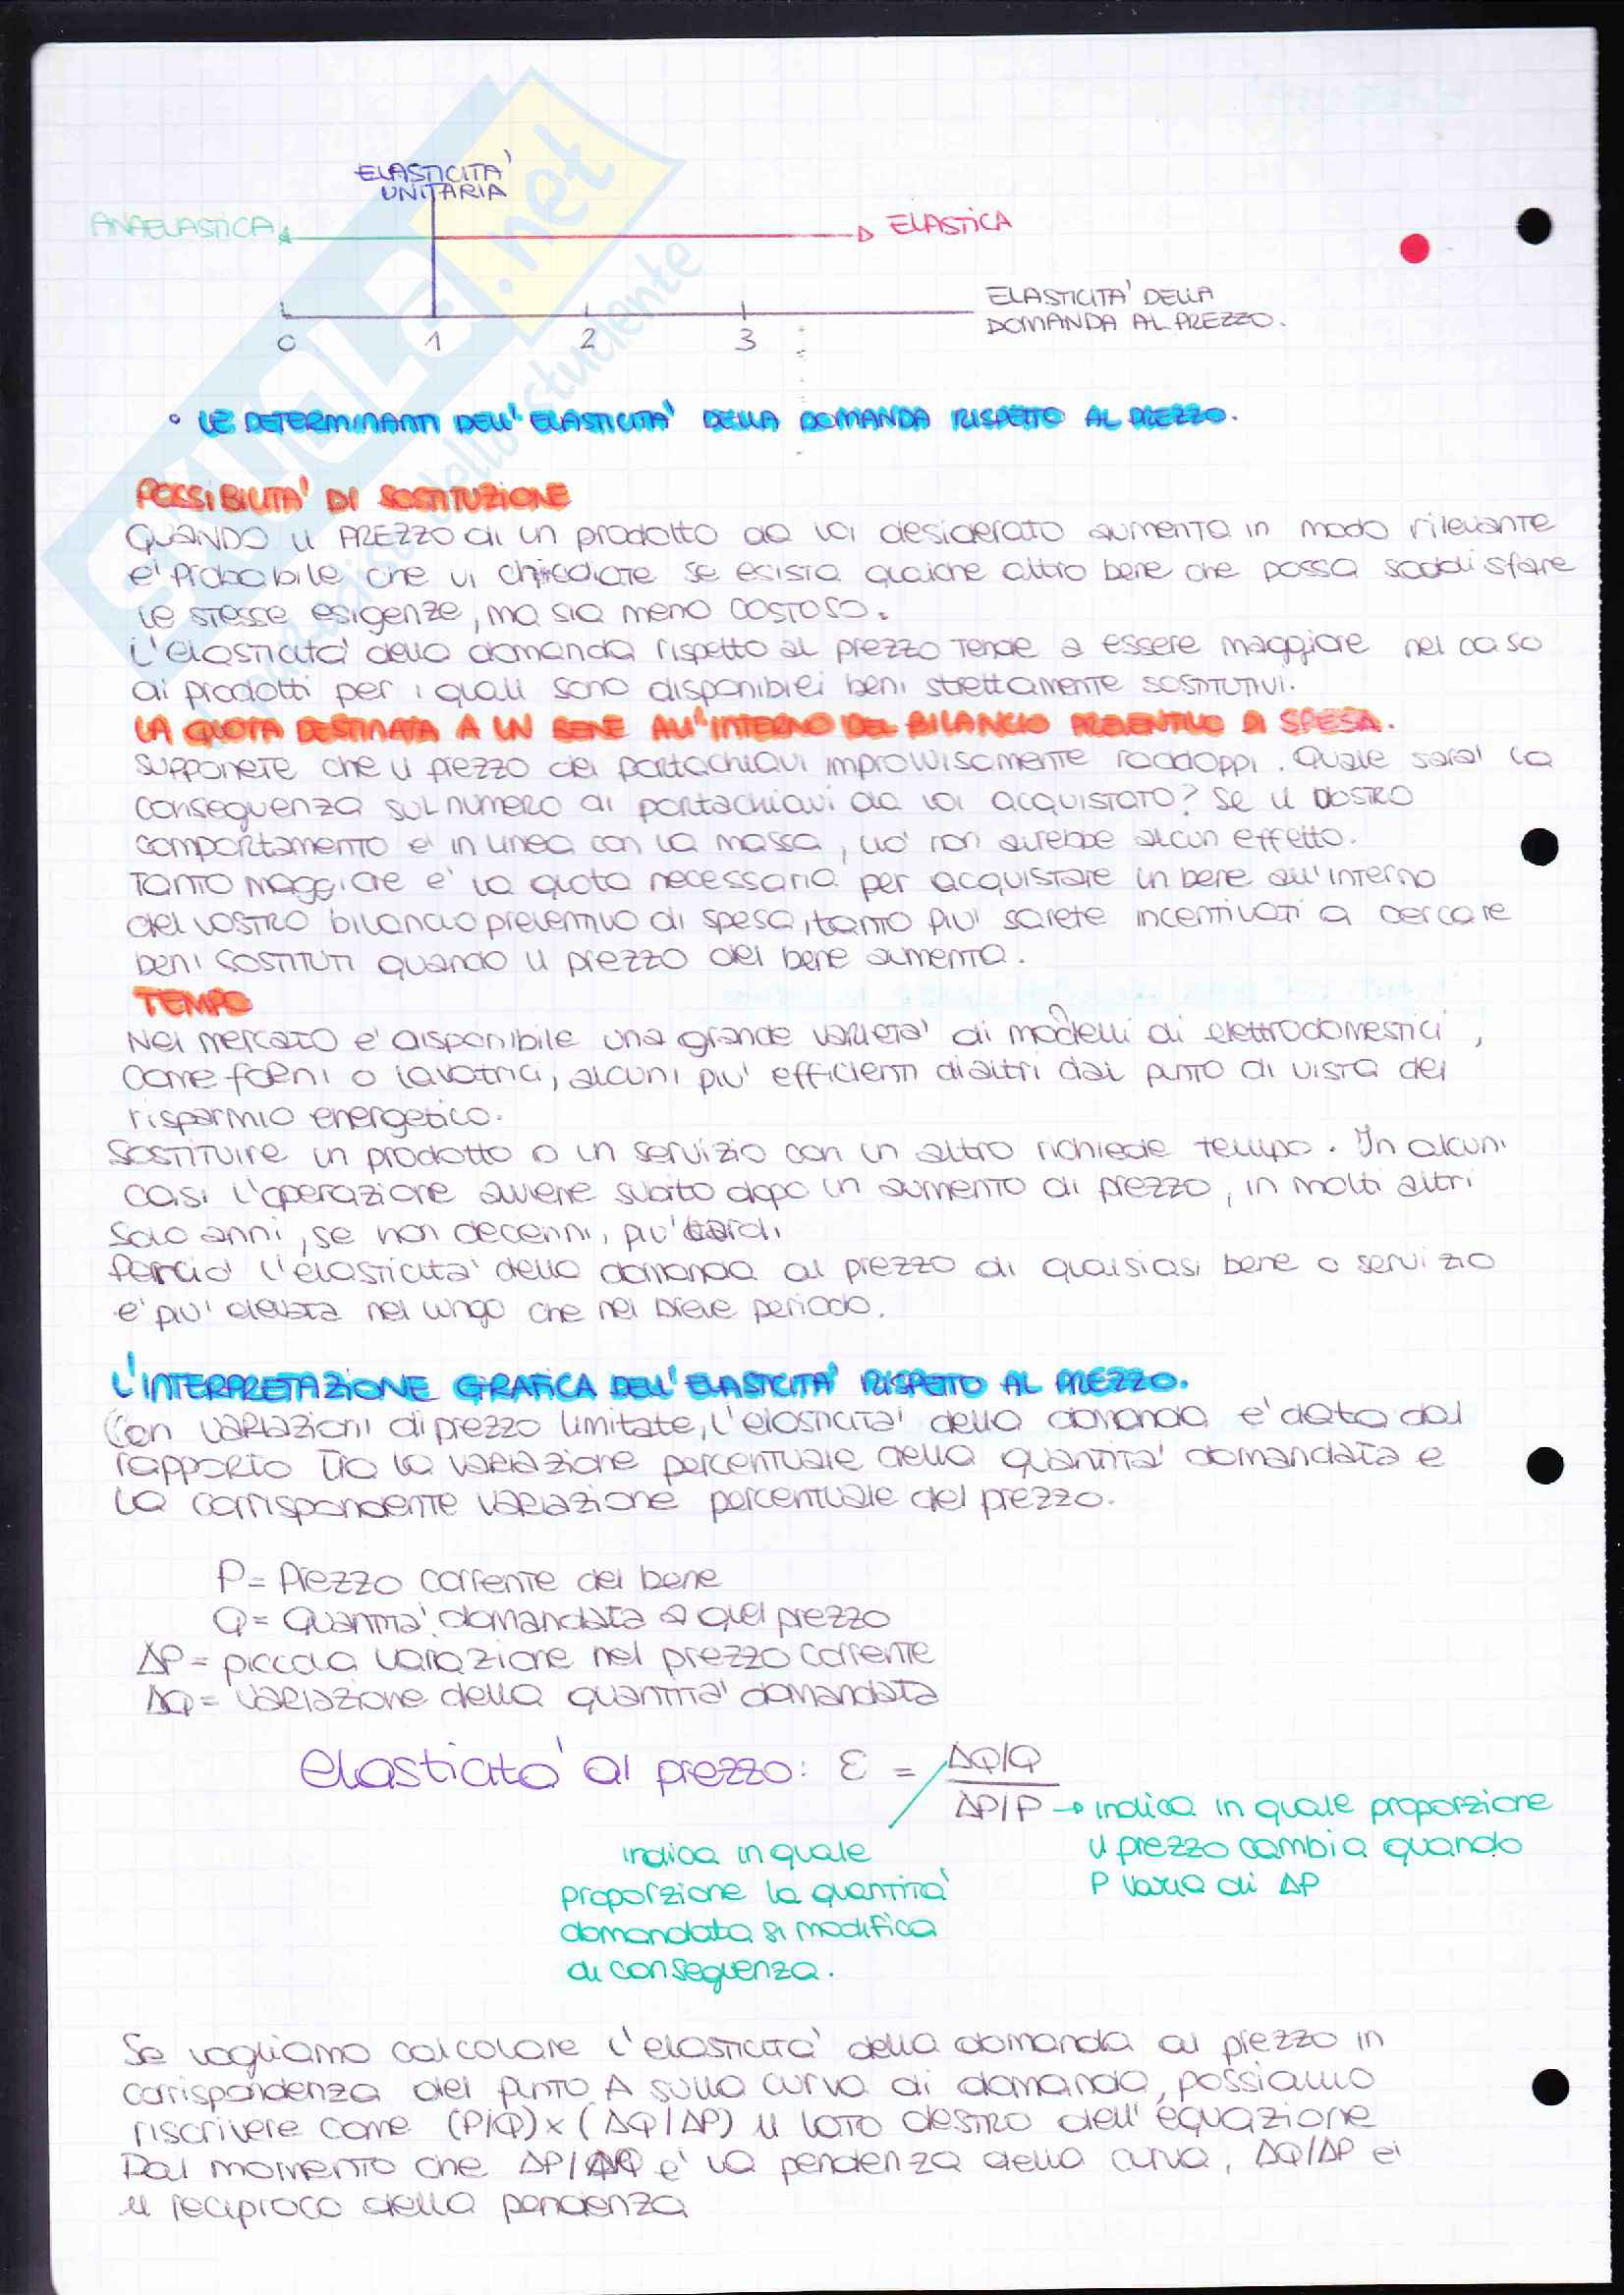 ELASTICITA'
UNITARIA
ANAELASTICA
ELASTICA
ELASTICITA' DELLA
DOMANDA AL PREZZO.
0 1 2 3
• LE DETERMINANTI DELL'ELASTICITA' DELLA DOMANDA RISPETTO AL PREZZO.
POSSIBILITA' DI SOSTITUZIONE
QUANDO il PREZZO di un prodotto da voi desiderato aumenta in modo rilevante
e' probabile che vi chiediate se esista qualche altro bene che possa soddisfare
le stesse esigenze, ma sia meno costoso.
L'elasticita' della domanda rispetto al prezzo tende a essere maggiore nel caso
di prodotti per i quali sono disponibili beni strettamente sostitutivi.
LA QUOTA DESTINATA A UN BENE ALL'INTERNO DEL BILANCIO PREVENTIVO DI SPESA.
Supponete che il prezzo dei portachiavi improvvisamente raddoppi. Quale sara' la
conseguenza sul numero di portachiavi da voi acquistato? Se il vostro
comportamento e' in linea con la massa, cio' non avrebbe alcun effetto.
Tanto maggiore e' la quota necessaria per acquistare un bene all'interno
del vostro bilancio preventivo di spesa, tanto piu' sarete incentivati a cercare
beni sostituti quando il prezzo del bene aumenta.
TEMPO
Nel mercato e' disponibile una grande varieta' di modelli di elettrodomestici,
come forni o lavatrici, alcuni piu' efficienti di altri dal punto di vista del
risparmio energetico.
Sostituire un prodotto o un servizio con un altro richiede tempo. In alcuni
casi l'operazione avviene subito dopo un aumento di prezzo, in molti altri
solo anni, se non decenni, piu' tardi
Percio' l'elasticita' della domanda al prezzo di qualsiasi bene o servizio
e' piu' elevata nel lungo che nel breve periodo.
L'INTERPRETAZIONE GRAFICA DELL'ELASTICITA' RISPETTO AL PREZZO.
Con variazioni di prezzo limitate, l'elasticita' della domanda e' data dal
rapporto tra la variazione percentuale della quantita' domandata e
la corrispondente variazione percentuale del prezzo.
P = Prezzo corrente del bene
Q = Quantita' domandata a quel prezzo
ΔP = piccola variazione nel prezzo corrente
ΔQ = variazione della quantita' domandata
elasticita' al prezzo: ε = ΔQ/Q
ΔP/P → indica in quale proporzione
il prezzo cambia quando
P varia di ΔP
indica in quale
proporzione la quantita'
domandata si modifica
di conseguenza.
Se vogliamo calcolare l'elasticita' della domanda al prezzo in
corrispondenza del punto A sulla curva di domanda, possiamo
riscrivere come (P/Q) x (ΔQ/ΔP) il lato destro dell'equazione
Dal momento che ΔP/ΔQ e' la pendenza della curva, ΔQ/ΔP e'
il reciproco della pendenza
SKUOLA.net
dello studente